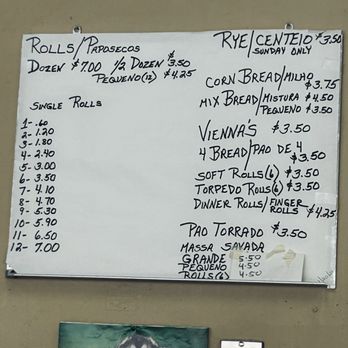 ROLLS/PAPOSECOS
DOZEN $7.00 ½ DOZEN $3.50
PEQUENO(12) $4.25
SINGLE ROLLS
1- .60
2- 1.20
3- 1.80
4- 2.40
5- 3.00
6- 3.50
7- 4.10
8- 4.70
9- 5.30
10- 5.90
11- 6.50
12- 7.00
RYE/CENTEIO $3.50
SUNDAY ONLY
CORN BREAD/MILHO
$3.75
MIX BREAD/MISTURA $4.50
PEQUENO $3.50
VIENNA'S $3.50
4 BREAD/PAO DE 4
$3.50
SOFT ROLLS(6) $3.50
TORPEDO ROLLS(6) $3.50
DINNER ROLLS/FINGER
ROLLS $4.25
PAO TORRADO $3.50
MASSA SAVADA
GRANDE 5.50
PEQUENO 4.50
ROLLS(6) 4.50